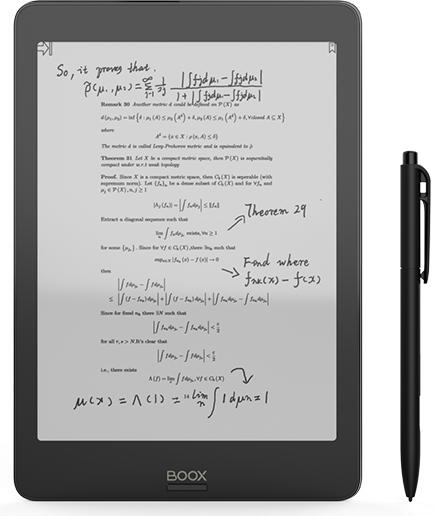 So, it proves that.
ρ̃(μ₁, μ₂) = Σ_{j=1}^∞ 1/2^j |∫fjdμ₁ − ∫fjdμ₂| / 1 + |∫fjdμ₁ − ∫fjdμ₂|
Remark 30 Another metric d could be defined on P(X) as
d(μ₁, μ₂) = inf{δ : μ₁(A) ≤ μ₂(A^δ) + δ, μ₂(A) ≤ μ₁(A^δ) + δ, ∀closed A ⊆ X}
where
A^δ = {x ∈ X : ρ(x, A) ≤ δ}
The metric d is called Levy-Prohorov metric and is equivalent to ρ̃
Theorem 31 Let X be a compact metric space, then P(X) is sequentially
compact under w.r.t weak topology
Proof. Since X is a compact metric space, then C_b(X) is seperable (with
supremum norm). Let {f_n}_n be a dense subset of C_b(X) and for ∀f_n, and
μ_j ∈ P(X), n, j ≥ 1
|Λ_j(f_n)| = |∫ f_n dμ_j| ≤ ‖f_n‖
Theorem 29
Extract a diagonal sequence such that
lim ∫ f_n dμ_{j_k} exists, ∀n ≥ 1
for some {μ_{j_k}}. Since for ∀f ∈ C_b(X), there ∃n_k such that
sup_{x∈X} |f_{n_k}(x) − f(x)| → 0
Find where
f_{nk}(x) − f(x)
then
|∫ fdμ_{j_r} − ∫ fdμ_{j_s}|
≤ |∫(f − f_{n_k})dμ_{j_r}| + |∫(f − f_{n_k})dμ_{j_s}| + |∫ f_{n_k}dμ_{j_r} − ∫ f_{n_k}dμ_{j_s}|
Since for fixed n_k there ∃N such that
|∫ f_{n_k}dμ_{j_r} − ∫ f_{n_k}dμ_{j_s}| < ε/2
for all r, s > N. It's clear that
|∫ fdμ_{j_r} − ∫ fdμ_{j_s}| < ε/2
i.e., there exists
Λ(f) = lim ∫ fdμ_{j_k}, ∀f ∈ C_b(X)
μ(x) = Λ(1) = lim_n ∫ 1 dμn = 1
BOOX